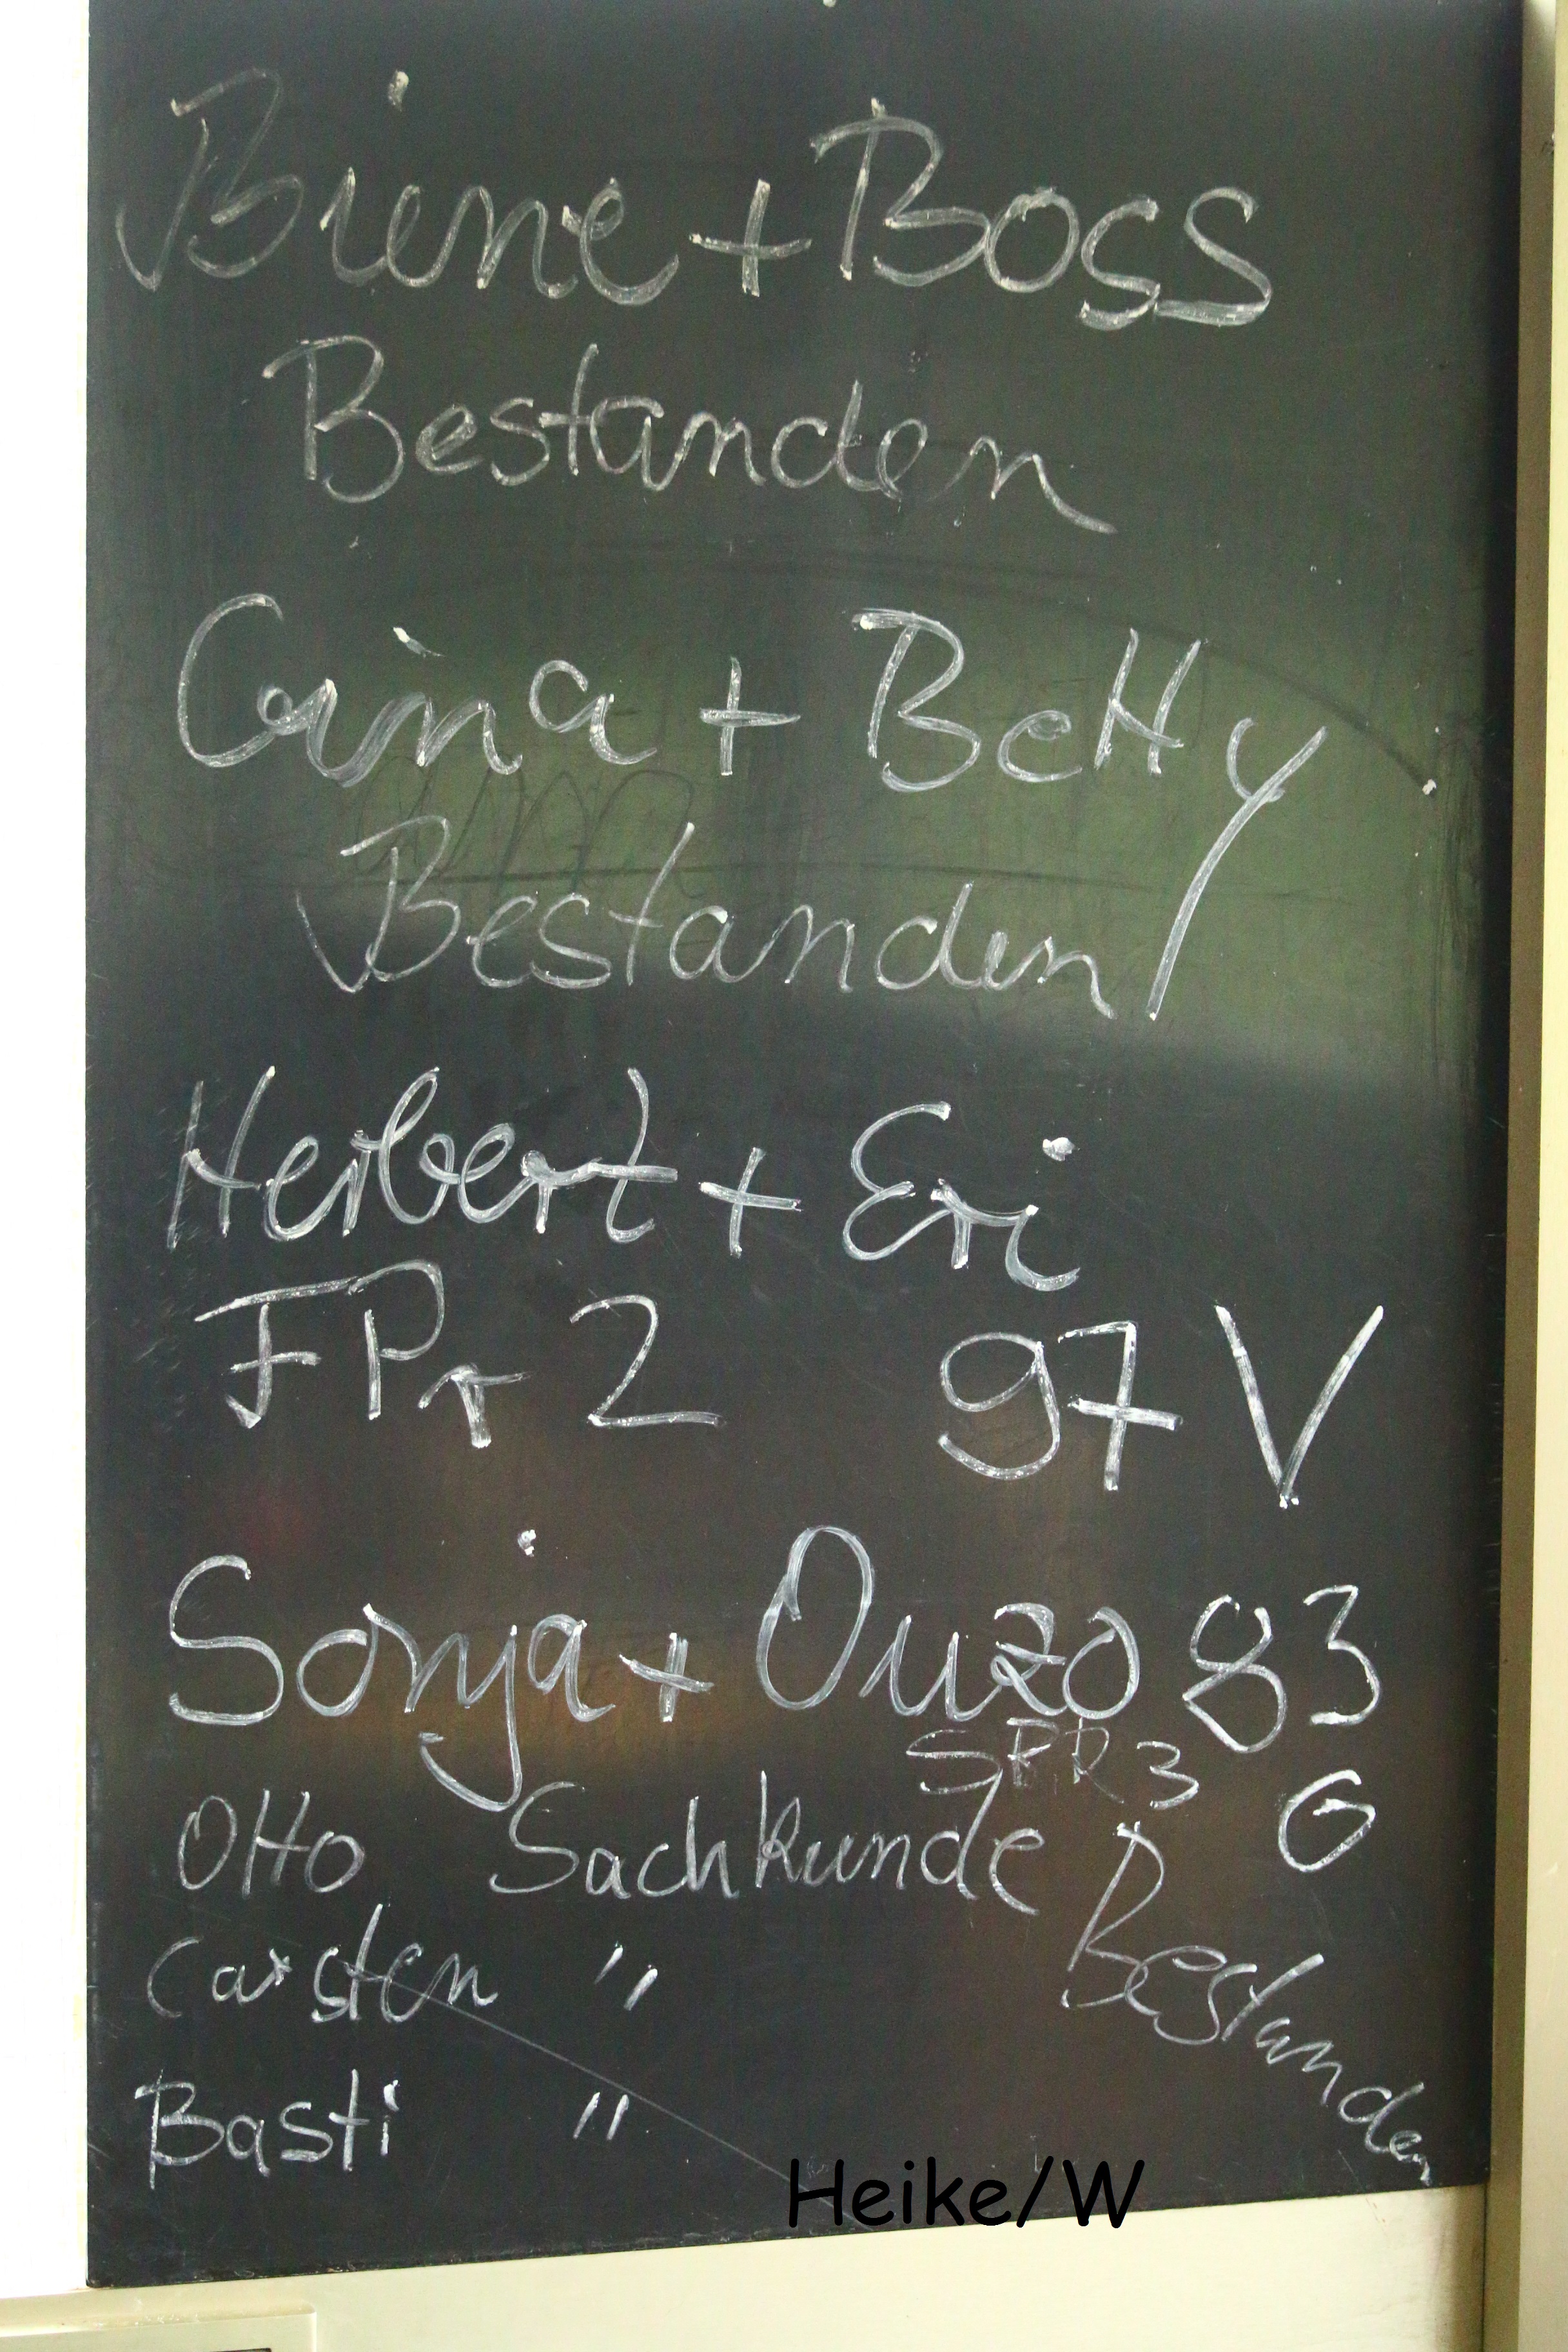 Biene + Boss
Bestanden
Carina + Betty
Bestanden
Herbert + Eri
FPr 2 97 V
Sonja + Ouzo 83
SPR 3 G
Otto Sachkunde Bestanden
Carsten "
Basti "
Heike/W